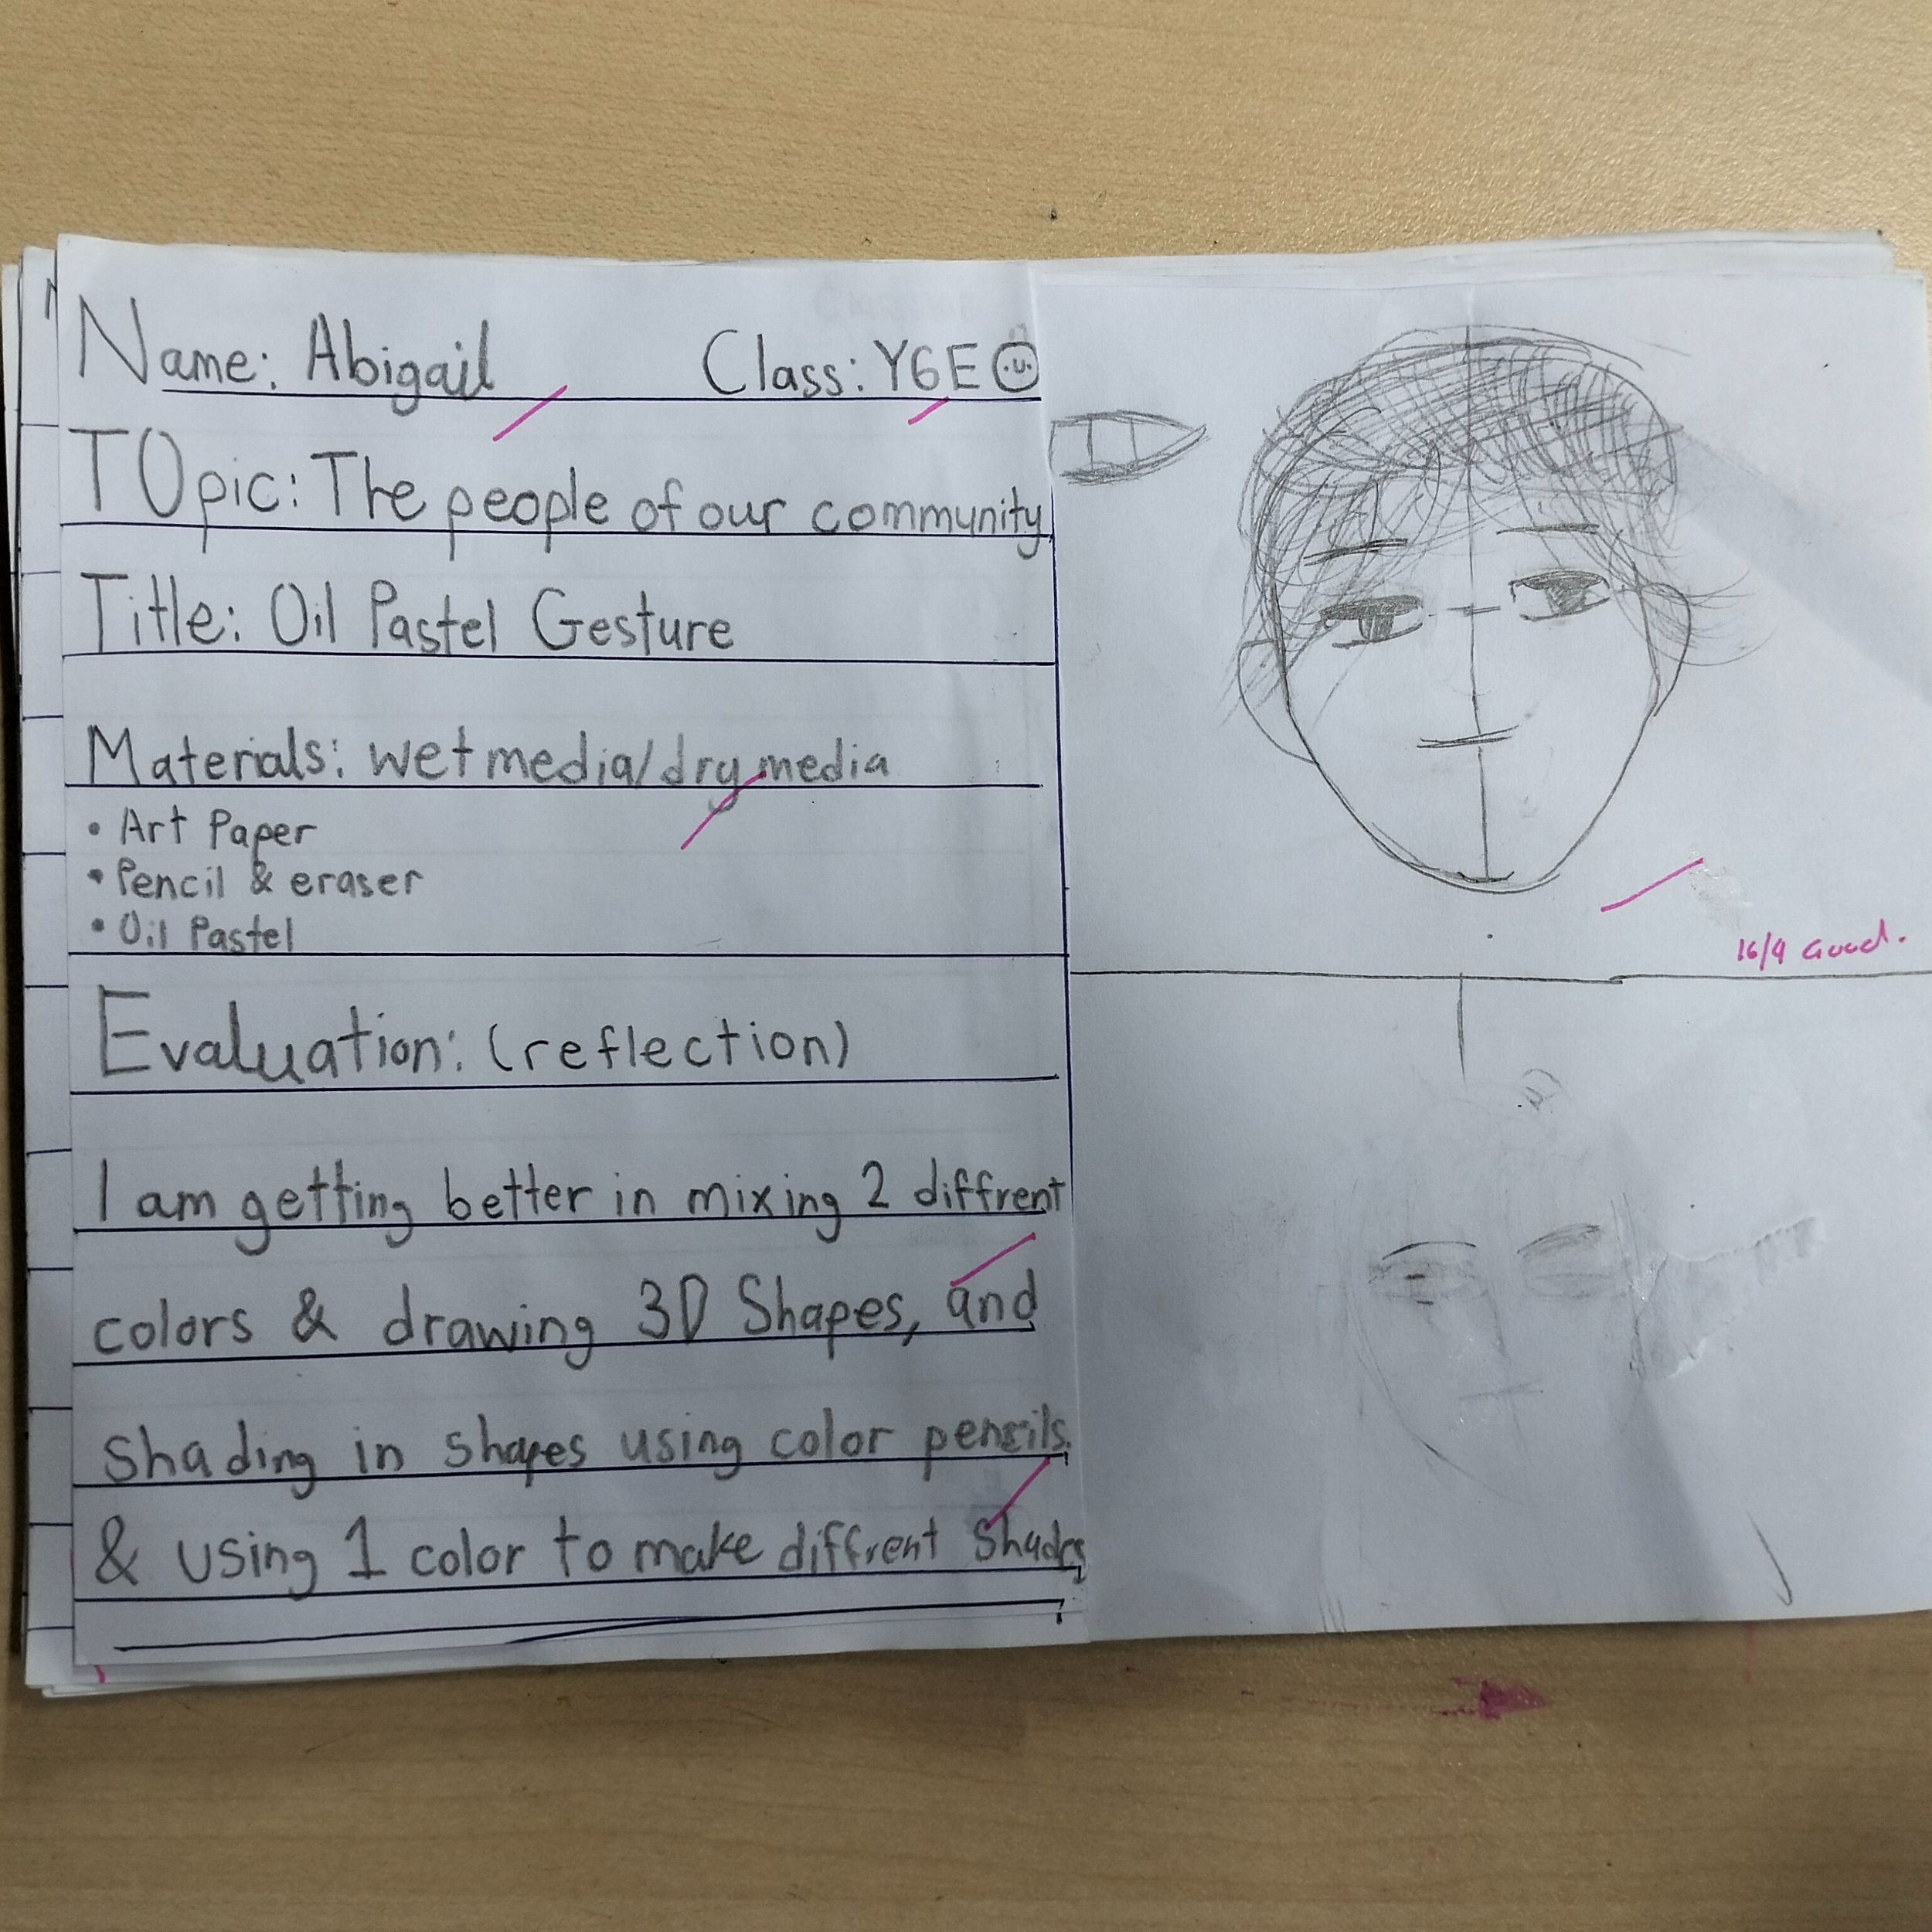 Name: Abigail Class: Y6E
TOpic: The people of our community
Title: Oil Pastel Gesture
Materials: wet media/dry media
• Art Paper
• Pencil & eraser
• Oil Pastel
Evaluation: (reflection)
I am getting better in mixing 2 diffrent
colors & drawing 3D Shapes, and
shading in shapes using color pencils.
& using 1 color to make diffrent Shades
16/9 Good.